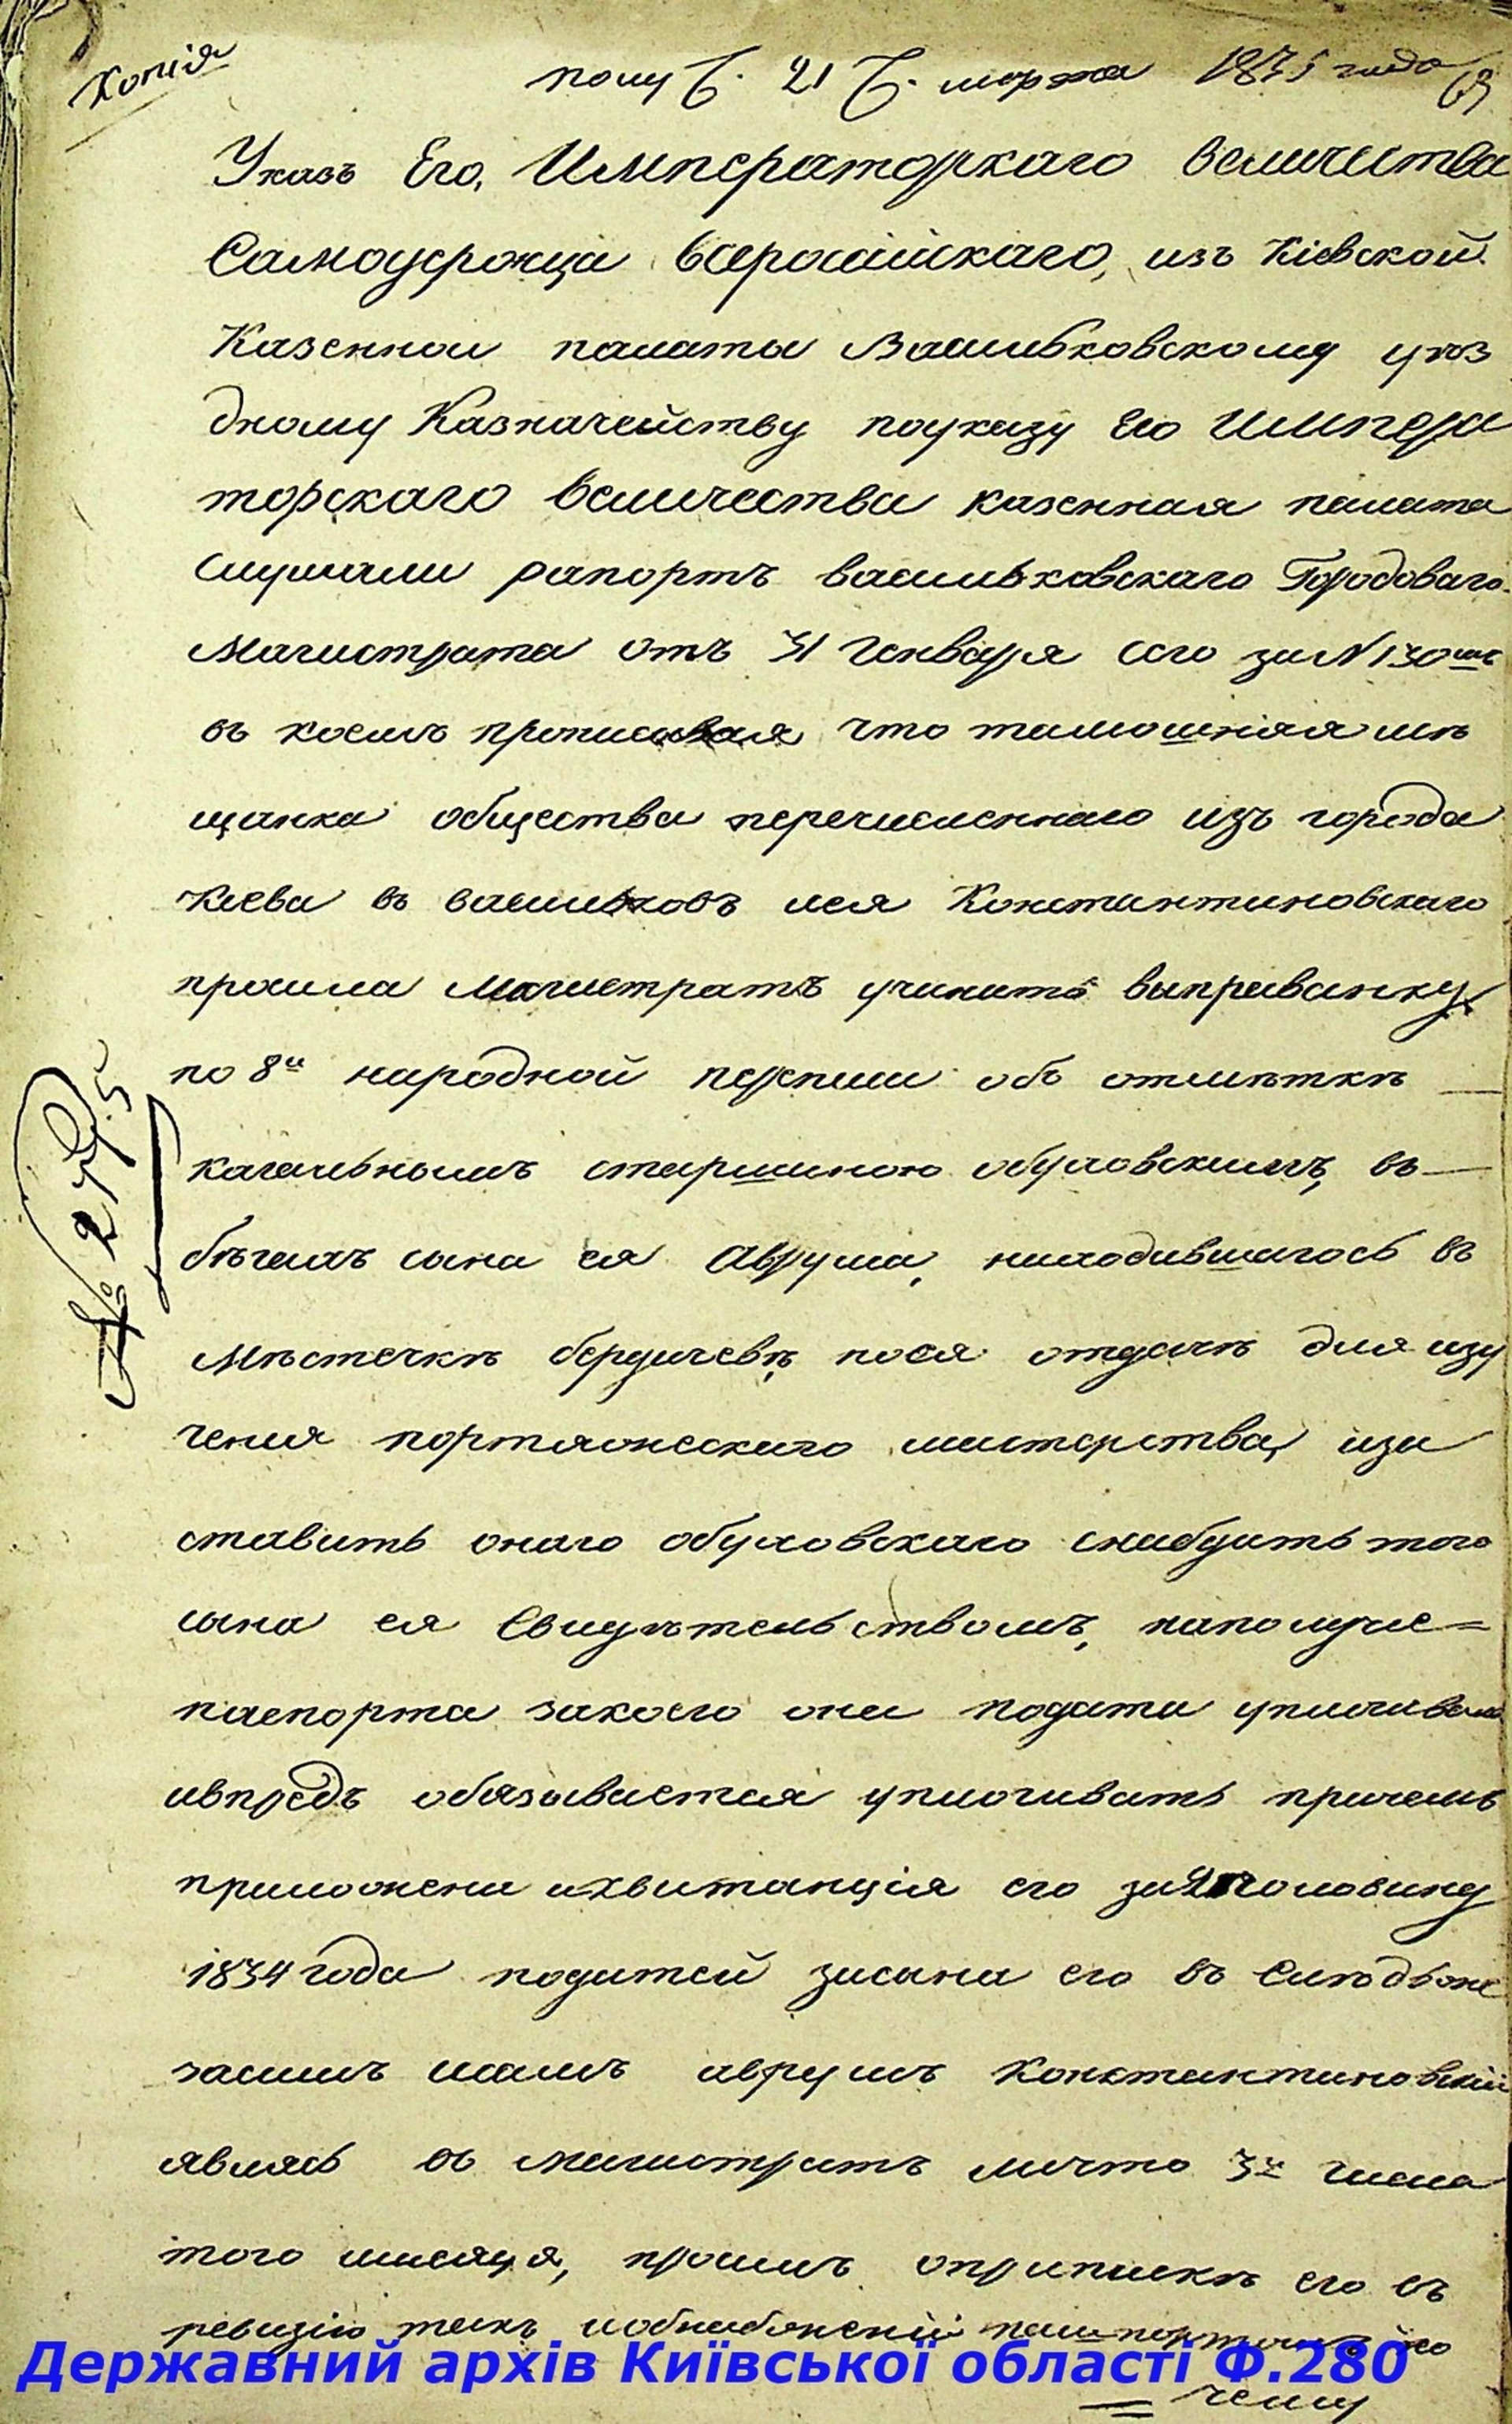 Копія
полу Ч. 21 Ч. марта 1875 года
Указъ Его, Императорскаго Величества
Самодержца Всероссійскаго, изъ Кіевской
Казенной палаты Васильковскому уѣз
дному Казначейству поуказу Его Импера
торскаго Величества казенная палата
слушали рапортъ васильковскаго Городоваго
Магистрата отъ 31 Генваря сего за N 130мъ
въ коемъ прописывая что тамошняя мѣ
щанка общества перечисленнаго изъ города
Кіева въ васильковъ лея Константиновскаго
просила Магистратъ учинить выправку
по 8й народной переписи объ отмѣткѣ
кагальнымъ старшиною обуховскимъ, въ
бѣгахъ сына ея Аврума, находившагось въ
Мѣстечкѣ бердичевѣ, поея отдачѣ для изу
ченія портняжескаго мастерства, иза
ставить онаго обуховскаго снабдить того
сына ея Свидѣтельствомъ, наполуче=
паспорта закоего она подати уплачивала
ивпредъ обязывается уплачивать причемъ
приложена иквитанція его за 2 половину
1834 года податей засына его въ
засимъ самъ аврумъ Константиновскій
являсь въ магистратъ лично 3й числа
того мѣсяца, просилъ оприпискѣ его въ
ревизію такъ иобнабженіи пашпортомъ по
чему
№ 2775
Державний архів Київської області Ф.280